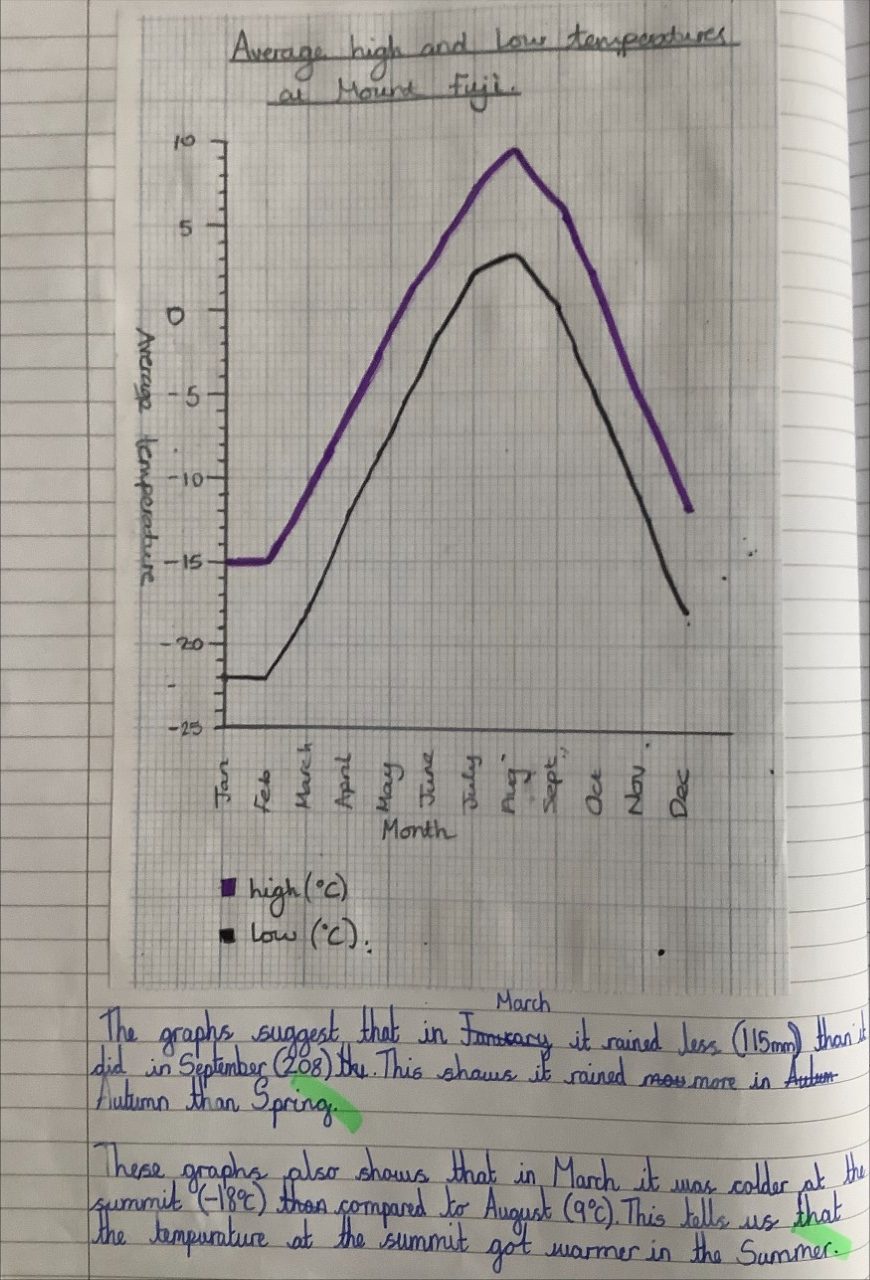 Average high and low temperatures
at Mount Fuji.
10
5
0
-5
-10
-15
-20
-25
Average temperature
Jan
Feb
March
April
May
June
July
Aug
Sept
Oct
Nov
Dec
Month
high (°C)
low (°C).
March
The graphs suggest that in January it rained less (115mm) than it
did in September (208) the. This shows it rained mou more in Autum
Autumn than Spring.
These graphs also shows that in March it was colder at the
summit (-18°c) than compared to August (9°c). This tells us that
the tempurature at the summit got warmer in the Summer.